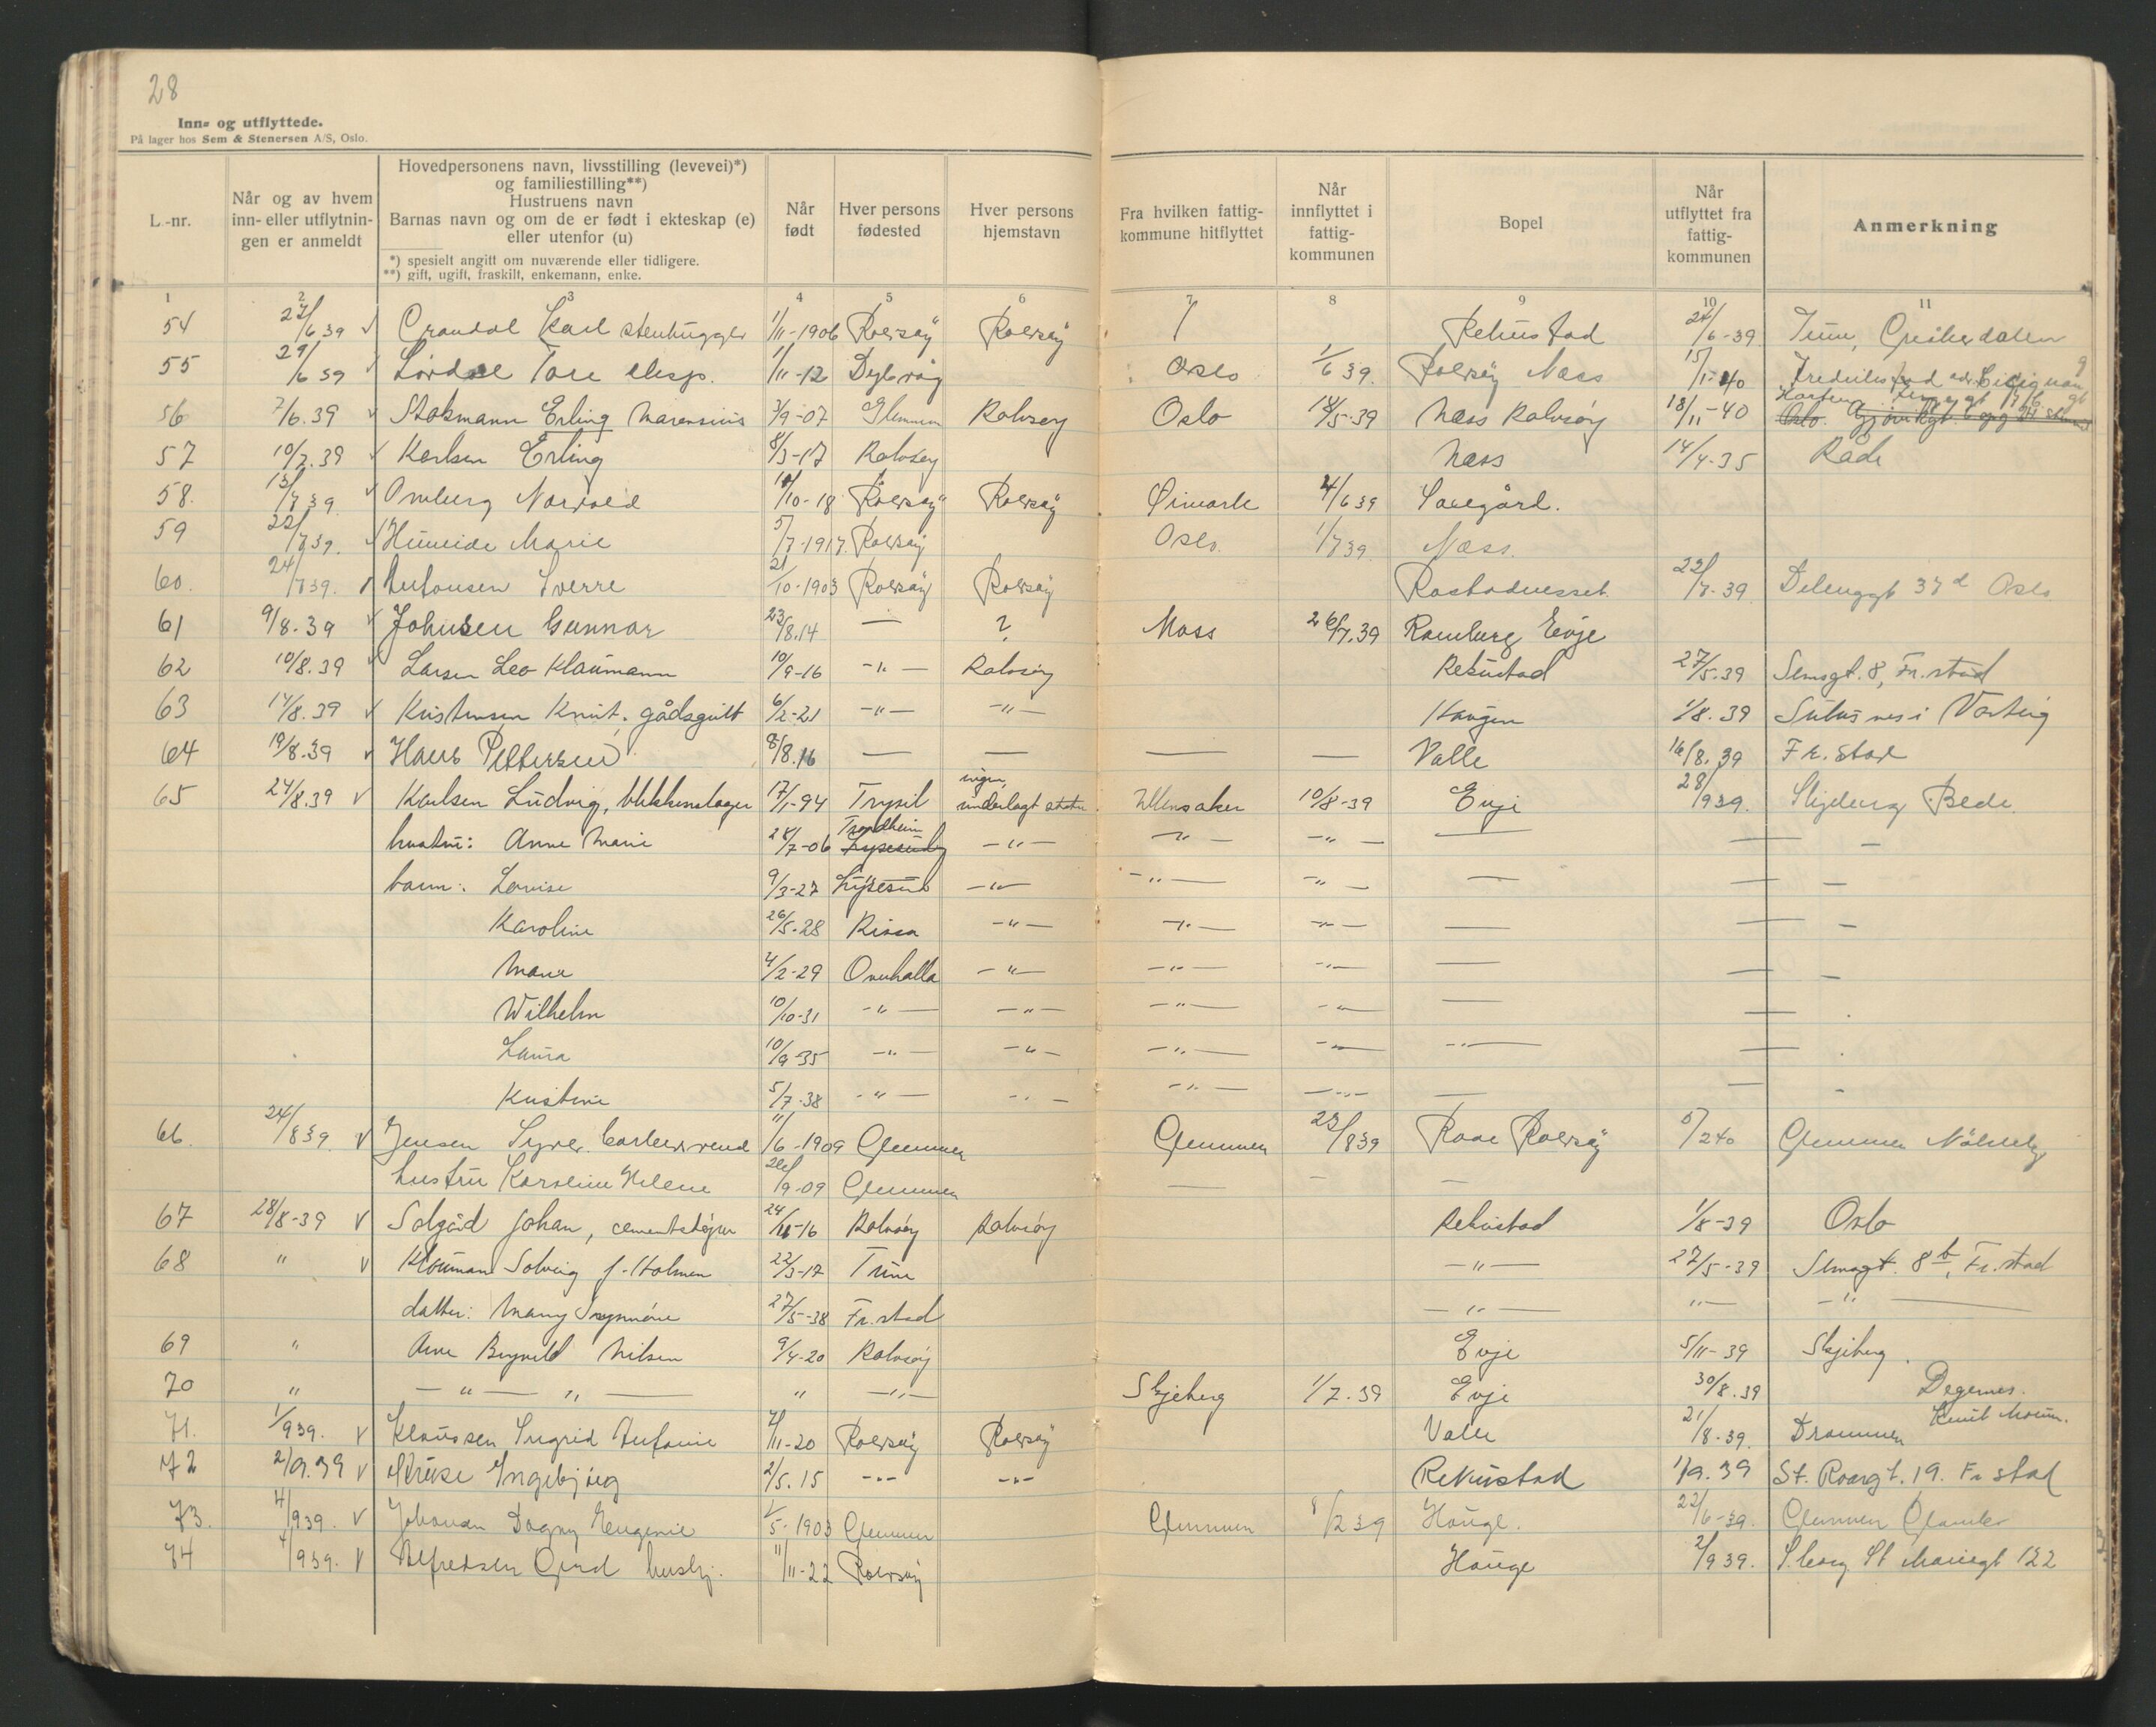 28
Inn- og utflyttede.
På lager hos Sem & Stenersen A/S, Oslo.
L.-nr.
Når og av hvem inn- eller utflytnin- gen er anmeldt
Hovedpersonens navn, livsstilling (levevei)*)
og familiestilling**)
Hustruens navn
Barnas navn og om de er født i ekteskap (e)
eller utenfor (u)
*) spesielt angitt om nuværende eller tidligere.
**) gift, ugift, fraskilt, enkemann, enke.
Når født
Hver persons fødested
Hver persons hjemstavn
Fra hvilken fattig- kommune hitflyttet
Når innflyttet i fattig- kommunen
Bopel
Når utflyttet fra fattig- kommunen
Anmerkning
1 2 3 4 5 6 7 8 9 10 11
54 27/6 39 Karl stenhugger 1/11-1906 Rolvsøy Rolvsøy Rekustad 24/6-39 Tune,
55 29/6 39 Tore eksp. 1/11-12 Oslo 1/6 39. Rolvsøy Næss 15/1-40
56 7/6.39 Stokmann Erling Marensius 7/9-07 Glemmen Rolvsøy Oslo 14/5-39 Næss Rolvsøy 18/11-40 Oslo.
57 10/7.39 Karlsen Erling 8/3-17 Rolvsøy Næss 14/4-35 Råde
58. 13/7 39 Omberg 10-18 Rolvsøy Rolvsøy Øimark 4/6 39
59 22/7 39. Marie 5/7-1917. Rolvsøy Oslo. 1/7 39 Næss.
60. 24/7 39. Antonsen Sverre 21/10-1903 Rolvsøy Rolvsøy Rostadnesset 22/7-39 37d Oslo
61 9/8.39 Johnsen Gunnar 23/8.14 — ? Moss 26/7.39 Ramberg Evje
62 10/8.39 Larsen Leo Klaumann 10/9-16 -"- Rolvsøy Rekustad 27/5.39 Semsgt. 8, Fr.stad
63 14/8.39 Kristensen Knut, gådsgutt 6/2-21 -"- -"- Haugen 1/8.39 i Varteig
64 19/8.39 Hans Pettersen 8/8.16 — — — — Valle 16/8.39 Fr.stad
65 24/8.39 Karlsen Ludvig, blikkenslager 17/1-94 Trysil ingen, underlagt staten Ullensaker 10/8-39 Evje 28/9 39. Skjeberg
hustru: Anne Marie 28/7-06 Trondheim -"- -"- -"- — — —
barn: Lovise 9/3-27 -"- -"- -"- — — —
Karoline 26/5.28 Rissa -"- -"- -"- — — —
Marie 4/2-29 Overhalla -"- -"- -"- — — —
Wilhelm 10/10-31 -"- -"- -"- -"- — —
Laura 10/9-35 -"- -"- -"- -"- -"- —
Kristine 5/7.38 -"- -"- -"- -"- — — -
66. 24/8 39. Jensen 11/6-1909 Glemmen Glemmen 23/8 39 Rolvsøy 5/2 40 Glemmen
hustru Karoline Helene 9-09 Glemmen — — —
67 28/8-39 Solgård Johan, cementstøper 24/11-16 Rolvsøy Rolvsøy Rekustad 1/8-39 Oslo
68 " Klouman Solveig f. Holmen 22/3-17 Tune -"- 27/5-39 Semsgt. 8b, Fr.stad
datter: Mary 27/5-38 Fr.stad -"- "- -"-
69 " Arne Nilsen 9/4-20 Rolvsøy Evje 5/11-39 Skjeberg.
70 " -"- " " -"- Skjeberg 1/7.39 Evje 30/8.39 Degernes.
71. 1/9 39. Klaussen Ingrid Antonie 11-20 Rolvsøy Rolvsøy Valle 21/8-39. Drammen
72 2/9.39 Ingebjørg 2/5.15 -"- -"- Rekustad 1/9.39 St. Roarsgt. 19. Fr stad
73. 4/9 39. Dagny Eugenie 5-1903 Glemmen Glemmen 8/2 39 Hauge. 22/6-39. Glemmen
74 4/9 39. Alfredsen Gerd hushj. 11/11-22 Rolvsøy Hauge 2/9 39. S.borg St Mariegt 122